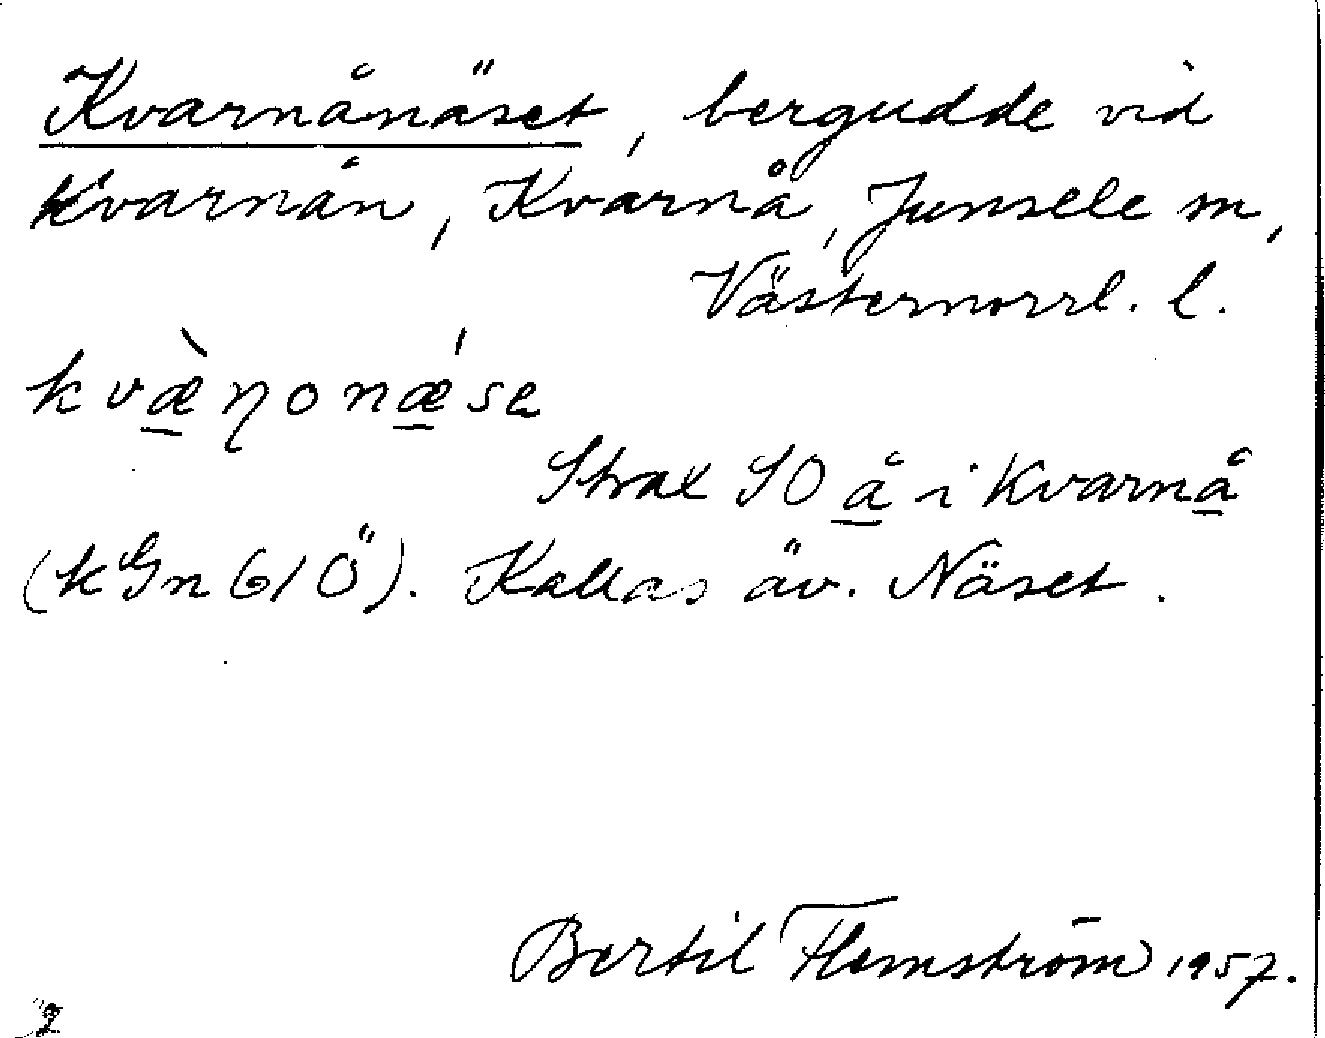 Kvarnånäset, bergudde vid
Kvarnån, Kvarnå, Junsele sn,
Västernorrl. l.
kvæ̀ŋonǽse
Strax SO å i Kvarnå
(kGn 61 Ö). Kallas äv. Näset.
Bertil Flemström 1957.
2